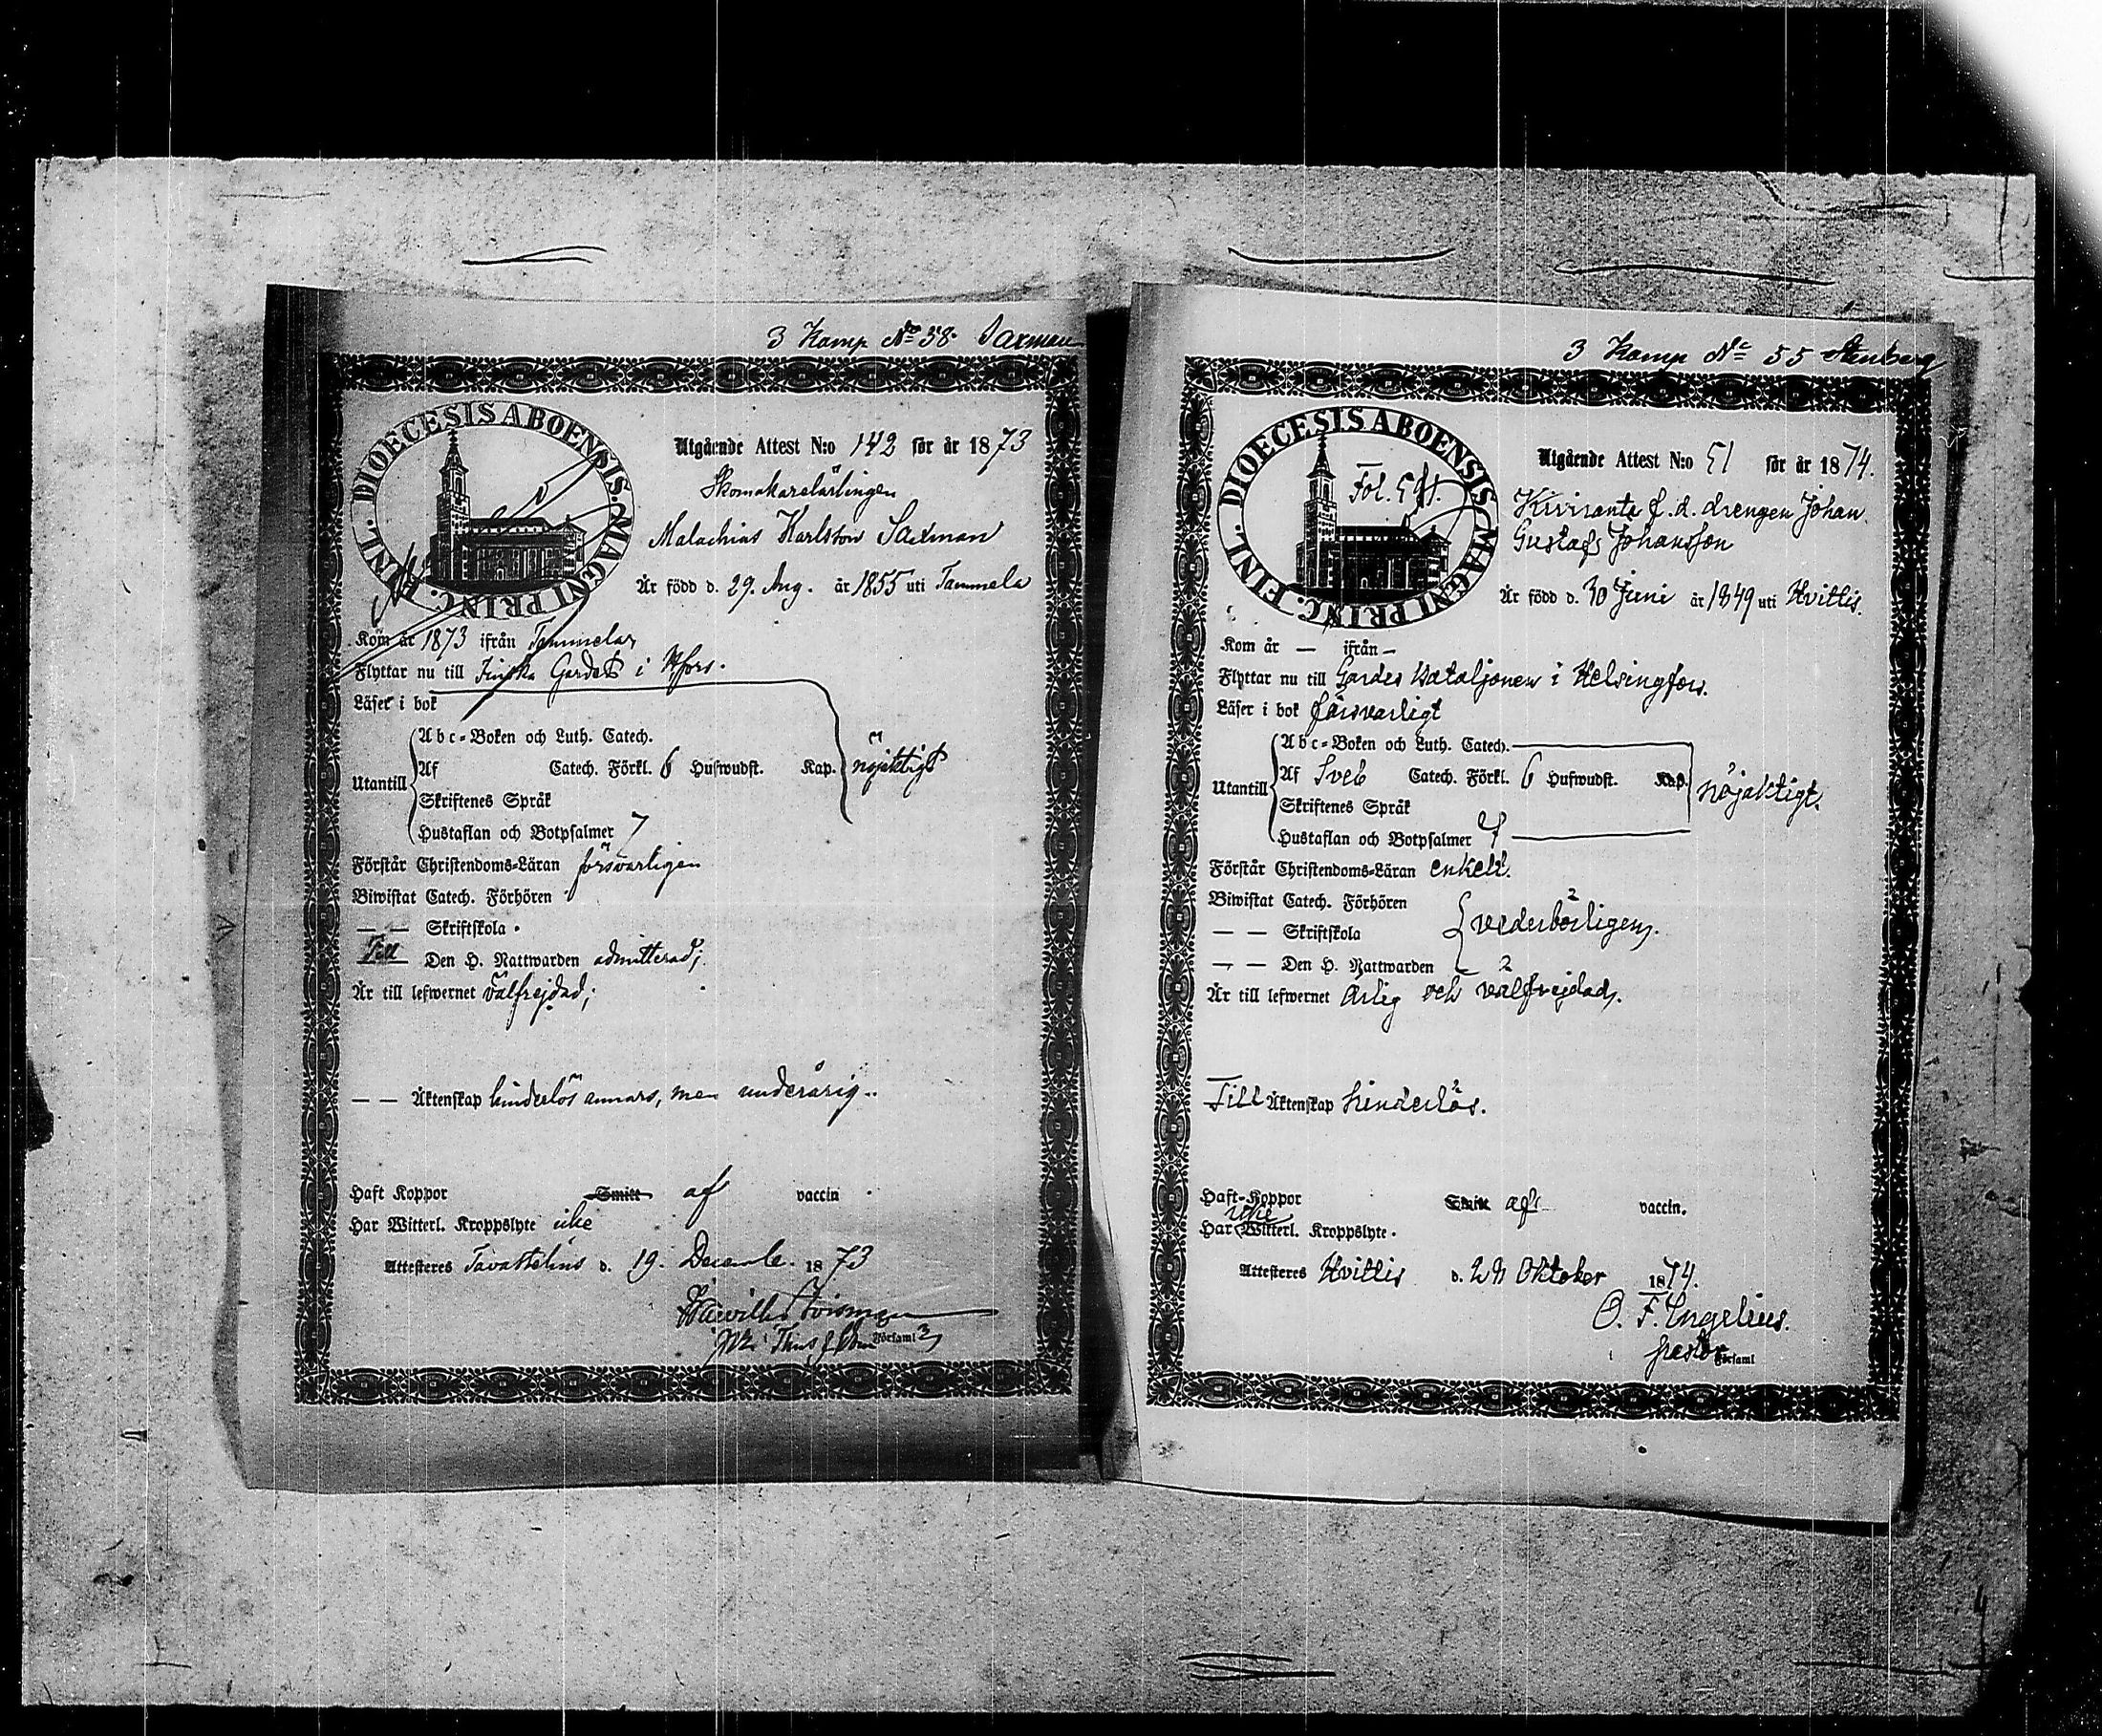 3 Komp No 58. Saxman
DIOECESIS ABOENSIS. MAGNI PRINC. FINL.
Utgående Attest N:o 142 för år 1873
Skomakarelärlingen
Malachias Karlsson Saxman
Är född d. 29. Aug. år 1855 uti Tammela
Kom år 1873 ifrån Tammela
Flyttar nu till Finska Gardet i Hfors.
Läser i bok
Abc-Boken och Luth. Catech.
Utantill Af Catech. Förkl. 6 Hufwudst. Kap. nöjaktigt
Skriftenes Språk
Hustaflan och Botpsalmer 7
Förstår Christendoms-Läran försvarligen
Biwistat Catech. Förhören
— — Skriftskola
Till Den H. Nattwarden admitterad;
Är till lefwernet välfrejdad;
— — Äktenskap hinderlös annars, men underårig.
Haft Koppor Smitt af vaccin
Har Witterl. Kroppslyte icke
Attesteres Tavastehus d. 19. Decemb. 1873
Församl
3 Komp No 55 Stenberg
DIOECESIS ABOENSIS. MAGNI PRINC. FINL.
Fol.
Utgående Attest N:o 51 för år 1874.
f.d. drengen Johan
Gustaf Johansson
Är född d. 30 Juni år 1849 uti Hvittis.
Kom år — ifrån —
Flyttar nu till Gardes Bataljonen i Helsingfors.
Läser i bok försvarligt
Abc-Boken och Luth. Catech.
Utantill Af Sveb Catech. Förkl. 6 Hufwudst. Kap. nöjaktigt.
Skriftenes Språk
Hustaflan och Botpsalmer
Förstår Christendoms-Läran enkelt.
Biwistat Catech. Förhören
— — Skriftskola vederbörligen.
— — Den H. Nattwarden
Är till lefwernet ärlig och välfrejdad.
Till Äktenskap hinderlös.
Haft Koppor Smitt af vaccin.
icke
Har Witterl. Kroppslyte.
Attesteres Hvittis d. Oktober 1874.
O. F. Ingelius.
pastor Församl